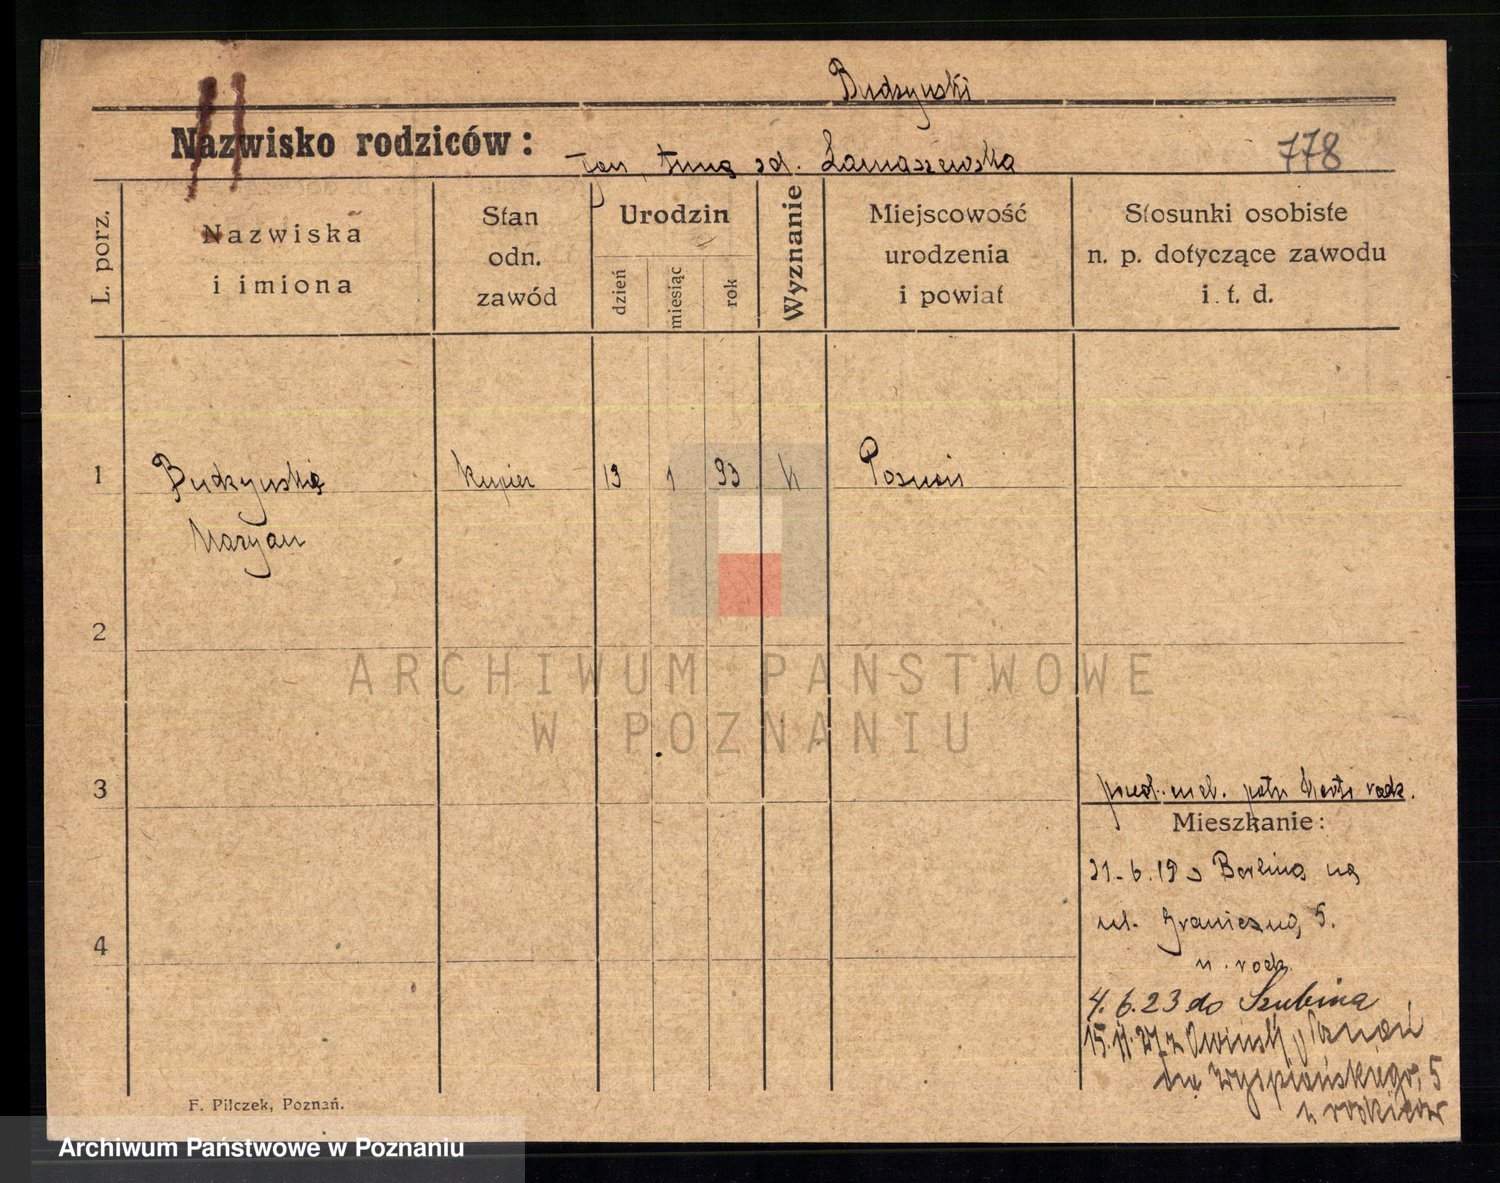 Budzyński
Nazwisko rodziców:
Jan, Anna zd. Łamaszewska
778
L. porz.
Nazwiska
i imiona
Stan
odn.
zawód
Urodzin
dzień
miesiąc
rok
Wyznanie
Miejscowość
urodzenia
i powiat
Stosunki osobiste
n. p. dotyczące zawodu
i. t. d.
1
Budzyński
Maryan
kupiec
13
1
93
k
Poznań
2
3
4
rodz.
Mieszkanie:
21.6.19 z Berlina na
ul. Graniczną 5.
u. rodz.
4.6.23 do Szubina
15.11.27 z Poznań
Wyspiańskiego, 5
u rodziców
F. Pilczek, Poznań.
ARCHIWUM PAŃSTWOWE
W POZNANIU
Archiwum Państwowe w Poznaniu